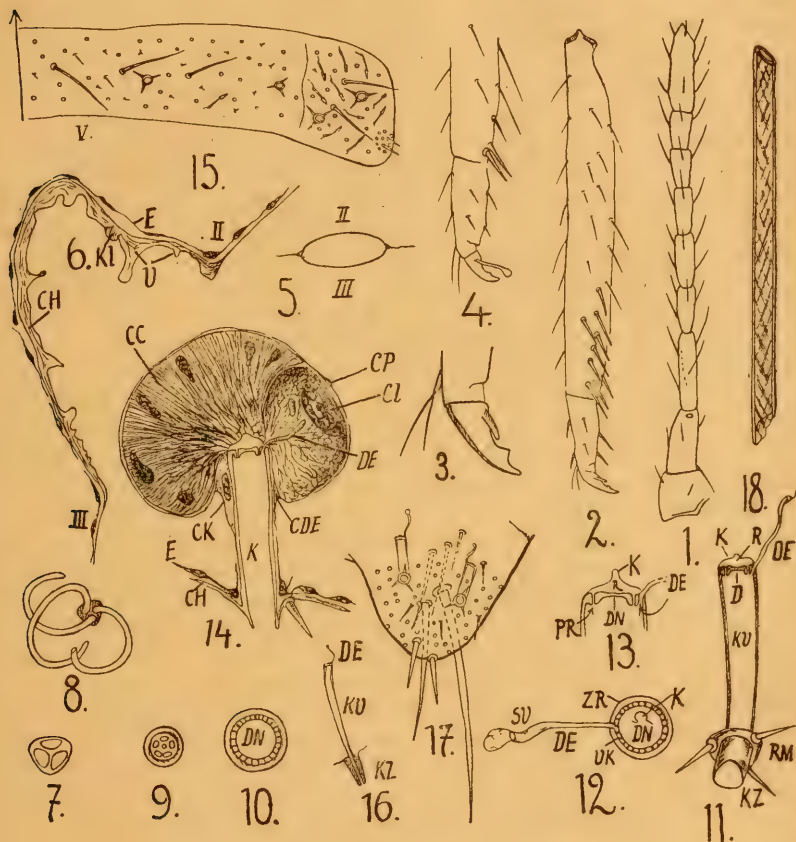 V.
15.
6. Kl
E
U
II
CH
III
II
5.
III
4.
CC
CP
Cl
DE
CK
K
CDE
E
CH
14.
3.
2.
1.
18.
8.
7.
9.
DN
10.
DE
KU
KZ
16.
17.
K
R
DE
PR
DN
13.
ZR
K
SU
DE
DN
UK
12.
K
R
DE
D
KU
RM
KZ
11.